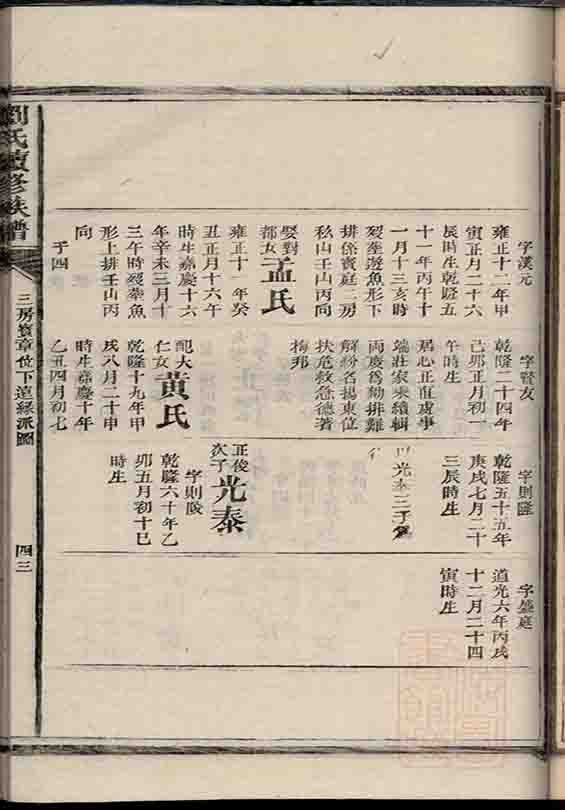 字漢元
雍正十二年甲
寅正月二十六
辰時生乾隆五
十一年丙午十
一月十三亥時
歿塟遊魚形下
排係賓庭二房
私山壬山丙向
娶對
都女
孟氏
雍正十一年癸
丑正月十六午
時生嘉慶十六
年辛未三月十
三午時歿塟魚
形上排壬山丙
向
子四
字賢友
乾隆二十四年
己卯正月初一
午時生
居心正直處事
端莊家乘續輯
兩慶為勷排難
解紛名揚東位
扶危救急德著
梅邦
配大
仁女
黃氏
乾隆十九年甲
戌八月二十申
時生嘉慶十年
乙丑四月初七
字則隆
乾隆五十五年
庚戌七月二十
三辰時生
光泰三子
正俊
次子
光泰
字則陵
乾隆六十年乙
卯五月初十巳
時生
字盛庭
道光六年丙戌
十二月二十四
寅時生
劉氏續修族譜
三房賓章位下遠緣派圖
四三